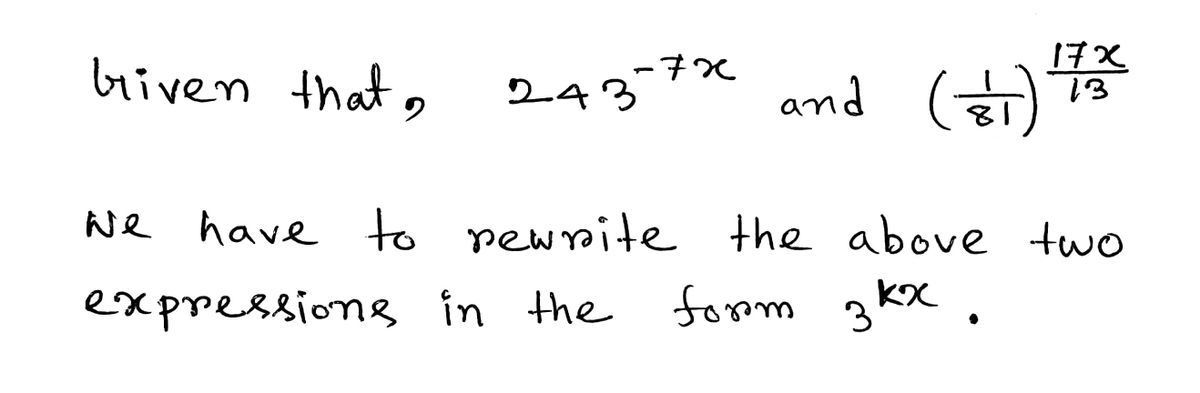 Given that, 243^{-7x} and (1/81)^{17x/13}
We have to rewrite the above two
expressions in the form 3^{kx}.